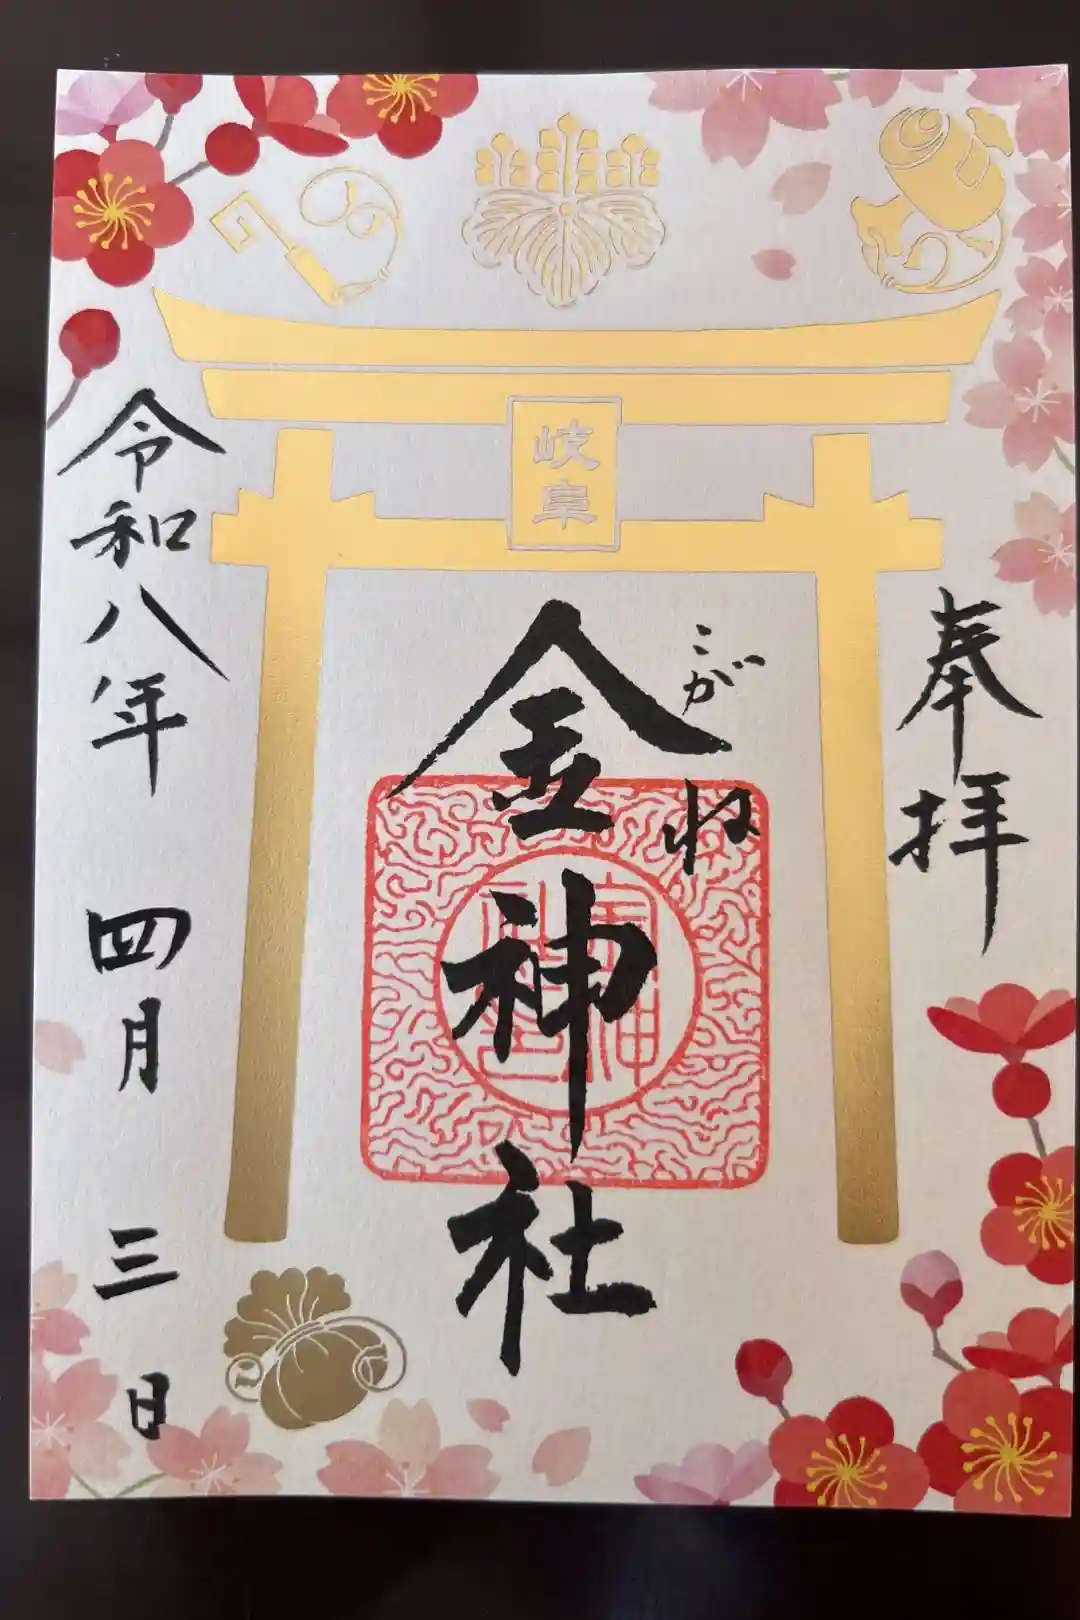 奉拝
岐阜
金神社
こがね
令和八年 四月 三日